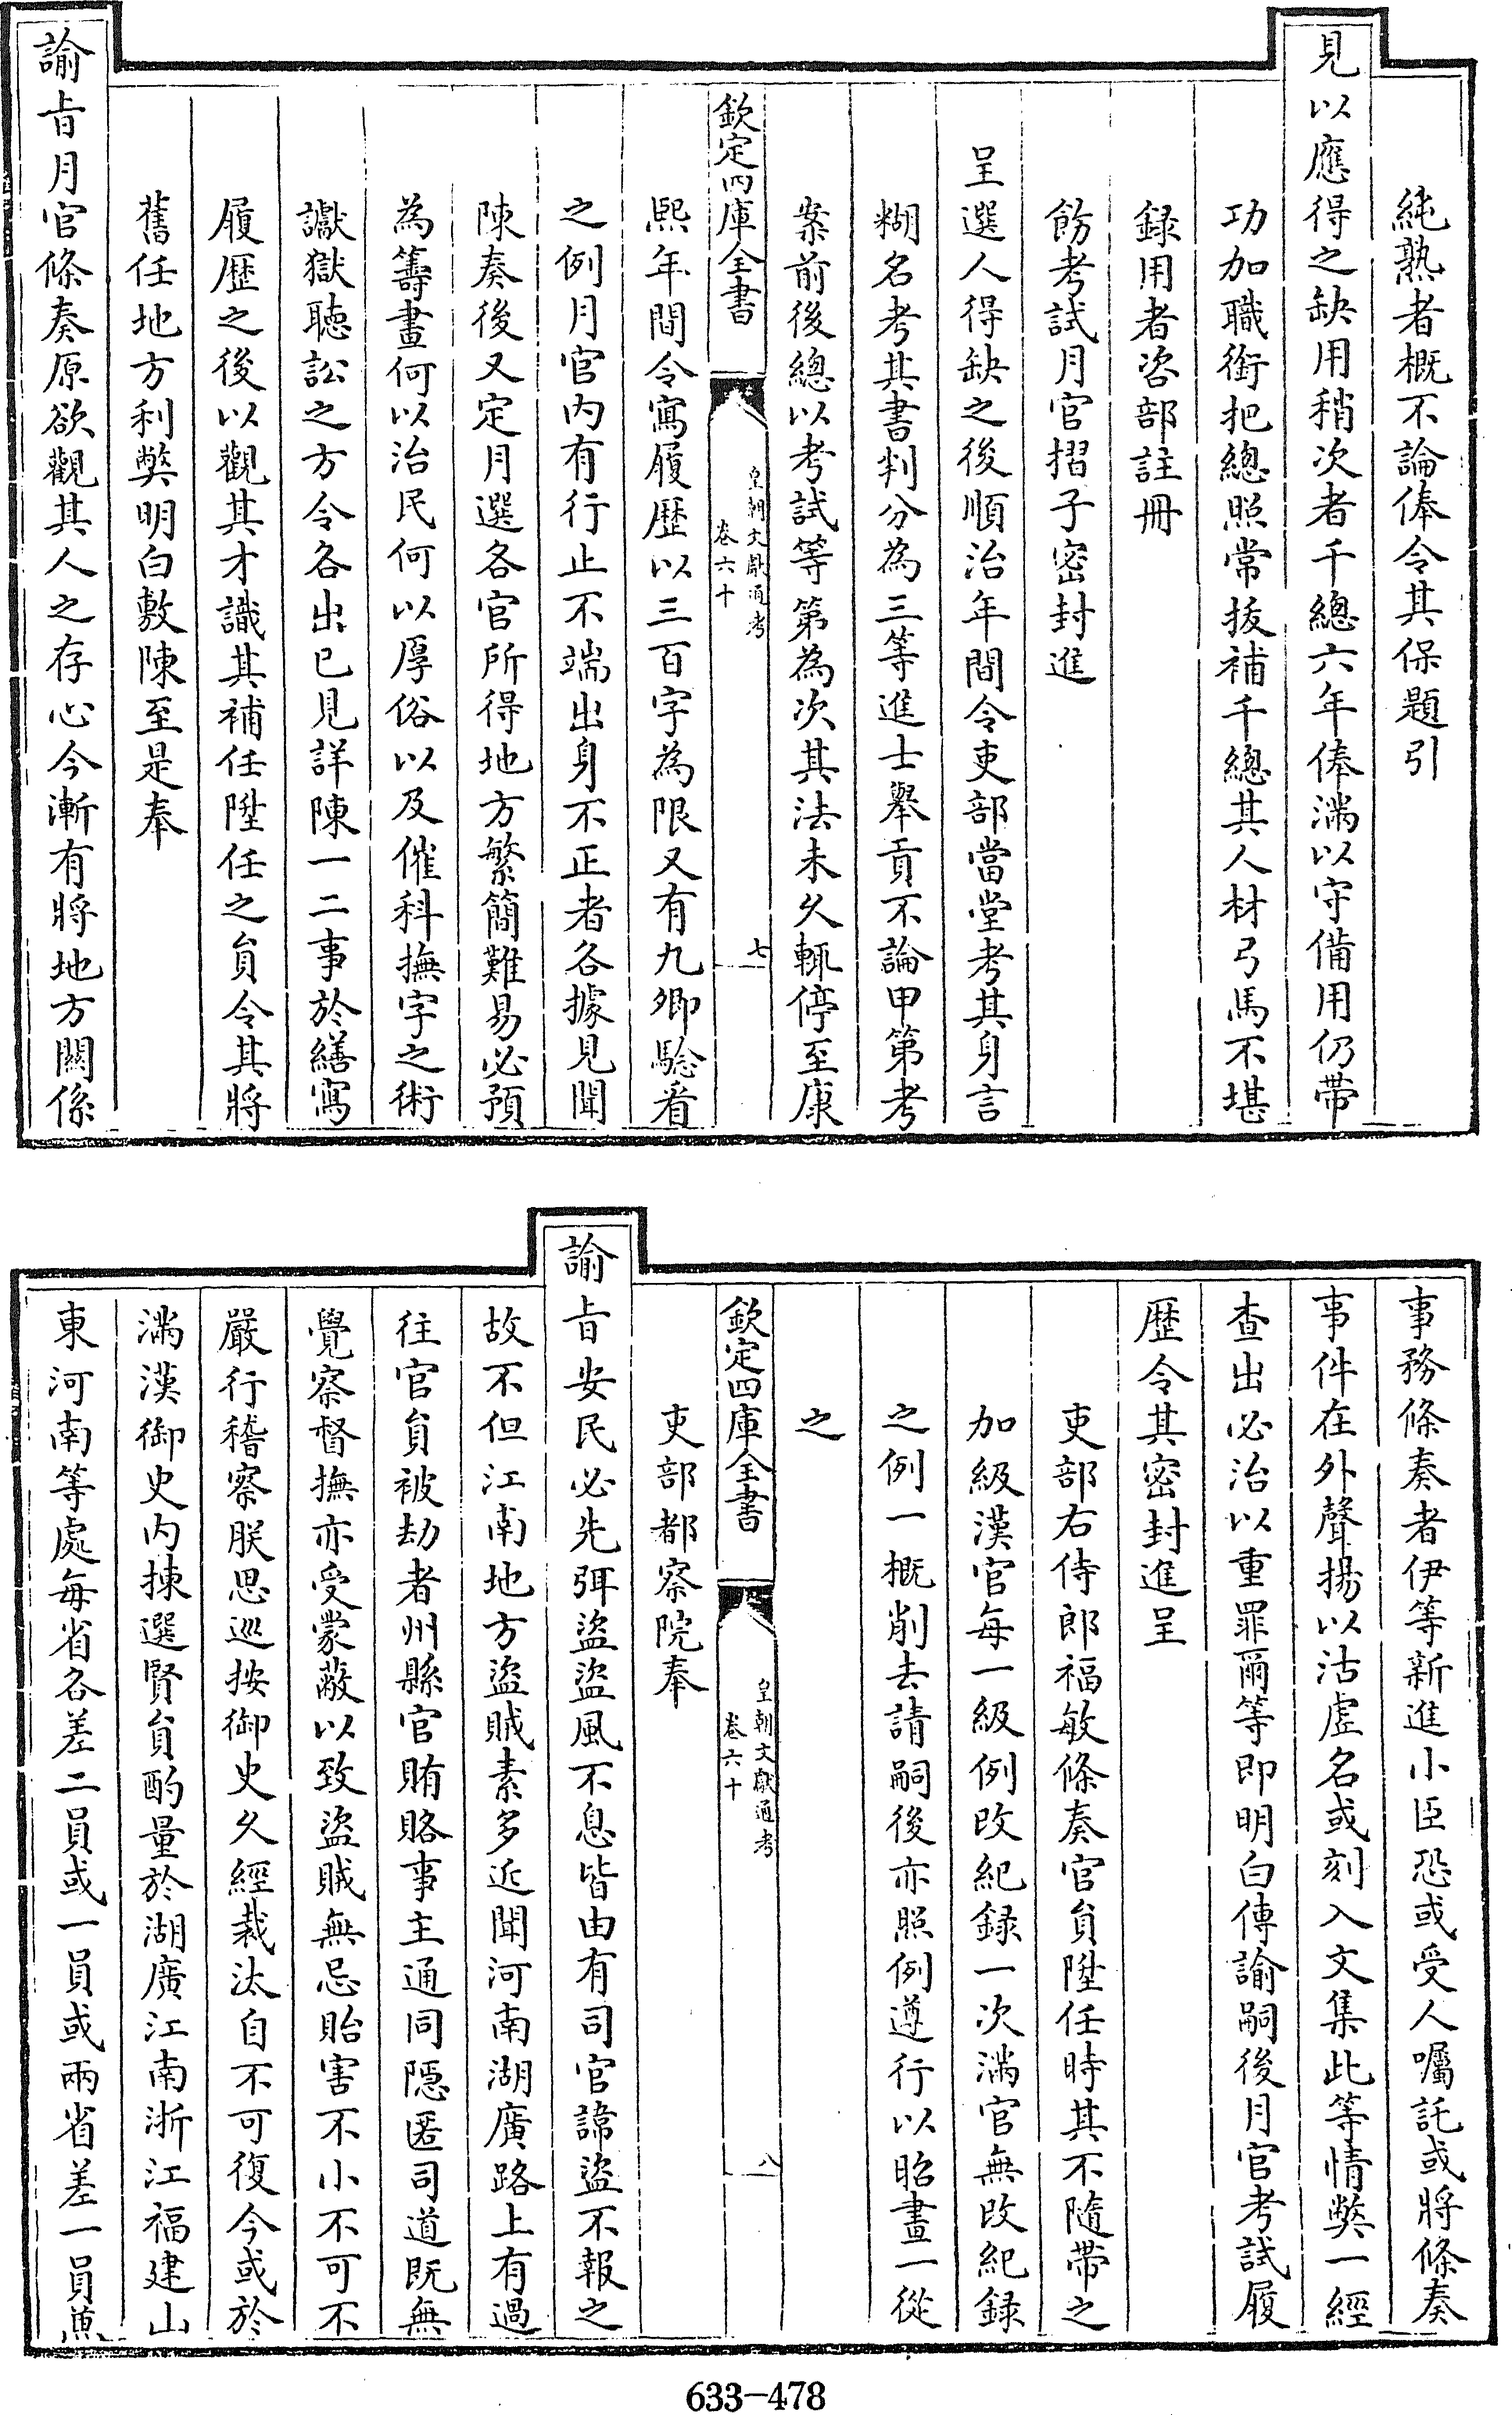 純熟者概不論俸令其保題引
見以應得之缺用稍次者千總六年俸滿以守備用仍帶
功加職銜把總照常拔補千總其人材弓馬不堪
録用者咨部註冊
飭考試月官摺子密封進
呈選人得缺之後順治年間令吏部當堂考其身言
糊名考其書判分為三等進士舉貢不論甲第考
案前後總以考試等第為次其法未久輒停至康
欽定四庫全書
皇朝文獻通考
卷六十
七
熙年間令寫履歴以三百字為限又有九卿驗看
之例月官内有行止不端出身不正者各據見聞
陳奏後又定月選各官所得地方繁簡難易必預
為籌畫何以治民何以厚俗以及催科撫字之術
讞獄聽訟之方令各出已見詳陳一二事於繕寫
履歴之後以觀其才識其補任陞任之員令其將
舊任地方利弊明白敷陳至是奉
諭㫖月官條奏原欲觀其人之存心今漸有將地方關係
事務條奏者伊等新進小臣恐或受人囑託或將條奏
事件在外聲揚以沽虛名或刻入文集此等情弊一經
查出必治以重罪爾等即明白傳諭嗣後月官考試履
歴令其密封進呈
吏部右侍郎福敏條奏官員陞任時其不隨帶之
加級漢官每一級例改紀録一次滿官無改紀録
之例一概削去請嗣後亦照例遵行以昭畫一從
之
欽定四庫全書
皇朝文獻通考
卷六十
八
吏部都察院奉
諭㫖安民必先弭盜盜風不息皆由有司官諱盜不報之
故不但江南地方盜賊素多近聞河南湖廣路上有過
往官員被劫者州縣官賄賂事主通同隱匿司道既無
覺察督撫亦受蒙蔽以致盜賊無忌貽害不小不可不
嚴行稽察朕思巡按御史久經裁汰自不可復今或於
滿漢御史内揀選賢員酌量於湖廣江南浙江福建山
東河南等處每省各差二員或一員或兩省差一員兼
633-478